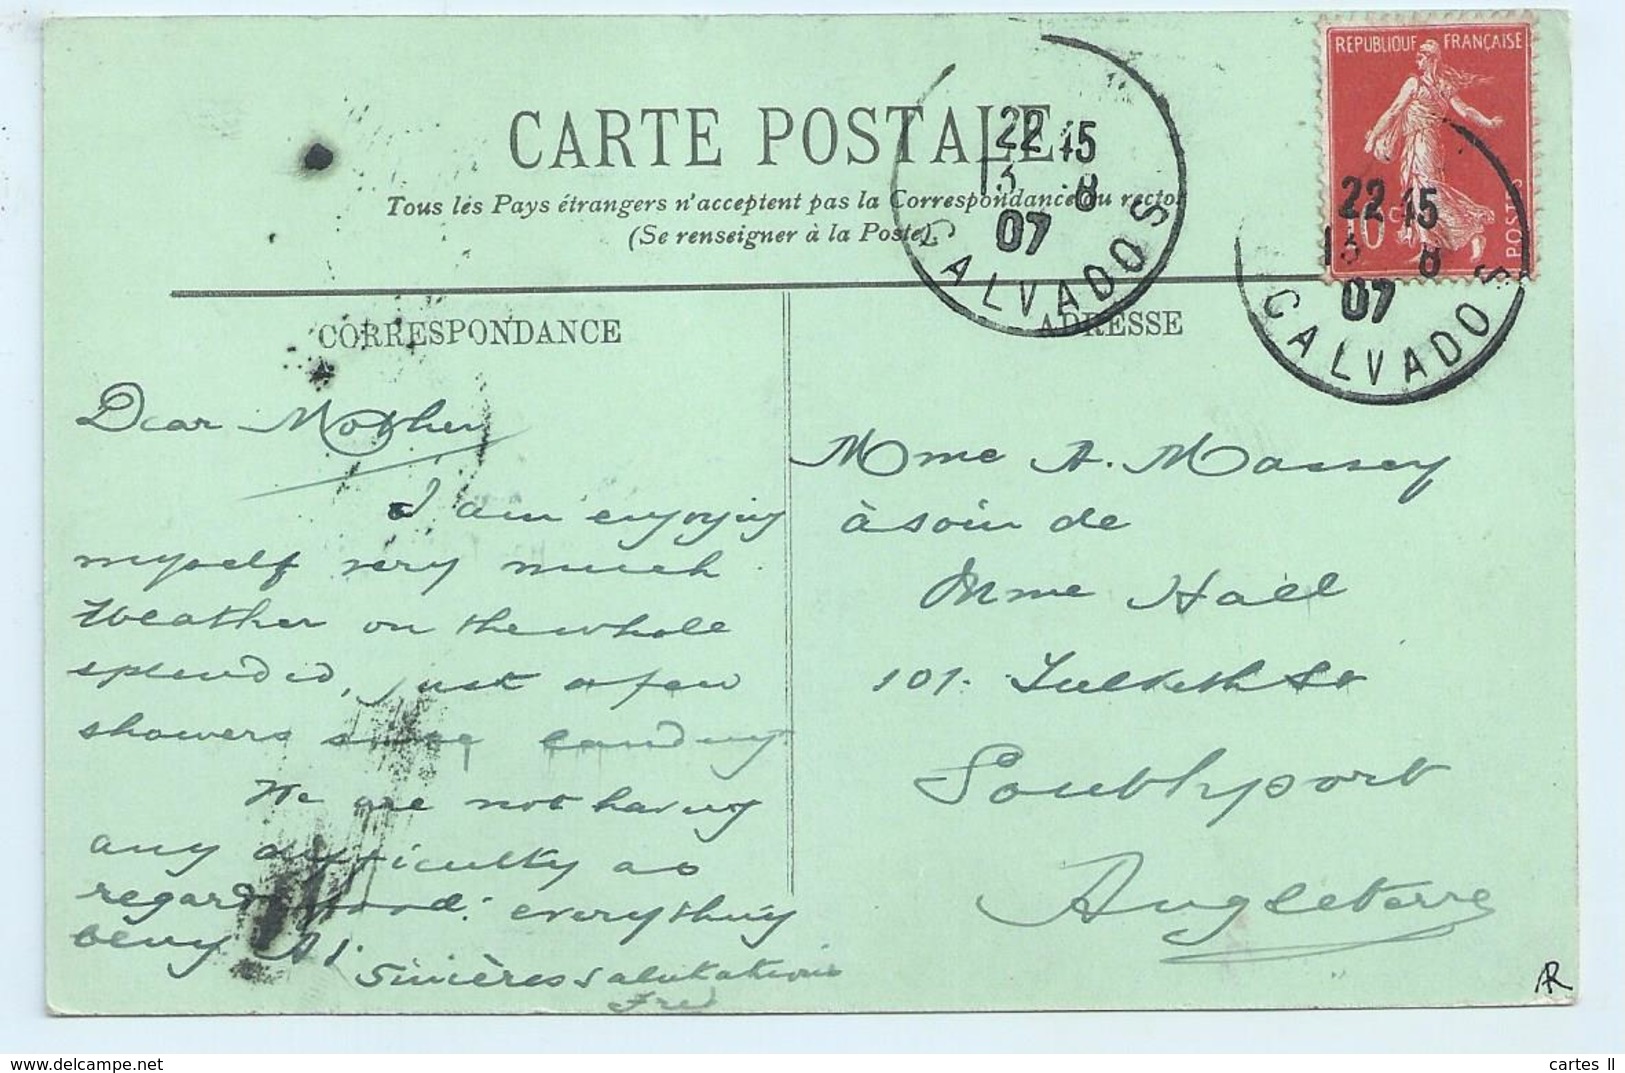 CARTE POSTALE
Tous les Pays étrangers n'acceptent pas la Correspondance au recto
(Se renseigner à la Poste)
REPUBLIQUE FRANÇAISE
10 c
POSTES
22 15
13 8
07
CALVADOS
22 15
13 8
07
CALVADOS
CORRESPONDANCE
Dear Mother
I am enjoying
myself very much.
Weather on the whole
splendid, just a few
showers since landing.
We are not having
any difficulty as
regards food: everything
being A1.
Sincères Salutations
Fred
ADRESSE
Mme A. Massey
à soin de
Mme Hall
101. Tulketh St
Southport
Angleterre
AR
cartes ll
www.delcampe.net